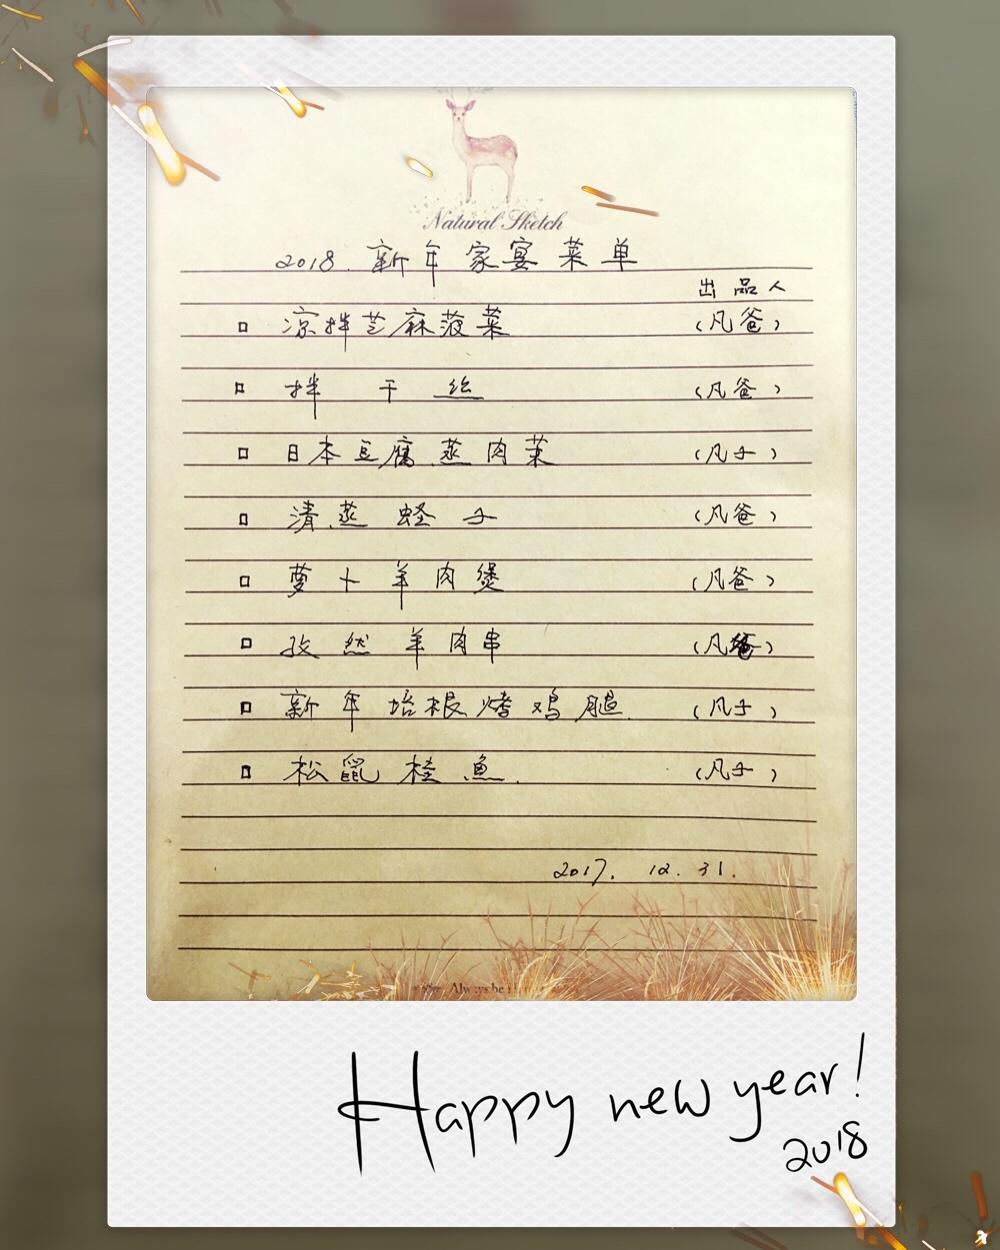 Natural Sketch
2018. 新年家宴菜单
出品人
凉拌芝麻菠菜 (凡爸)
拌干丝 (凡爸)
日本豆腐蒸肉茉 (凡子)
清蒸蛏子 (凡爸)
萝卜羊肉煲 (凡爸)
孜然羊肉串 (凡爸)
新年培根烤鸡腿. (凡子)
松鼠桂魚. (凡子)
2017. 12. 31.
Always be
Happy new year!
2018